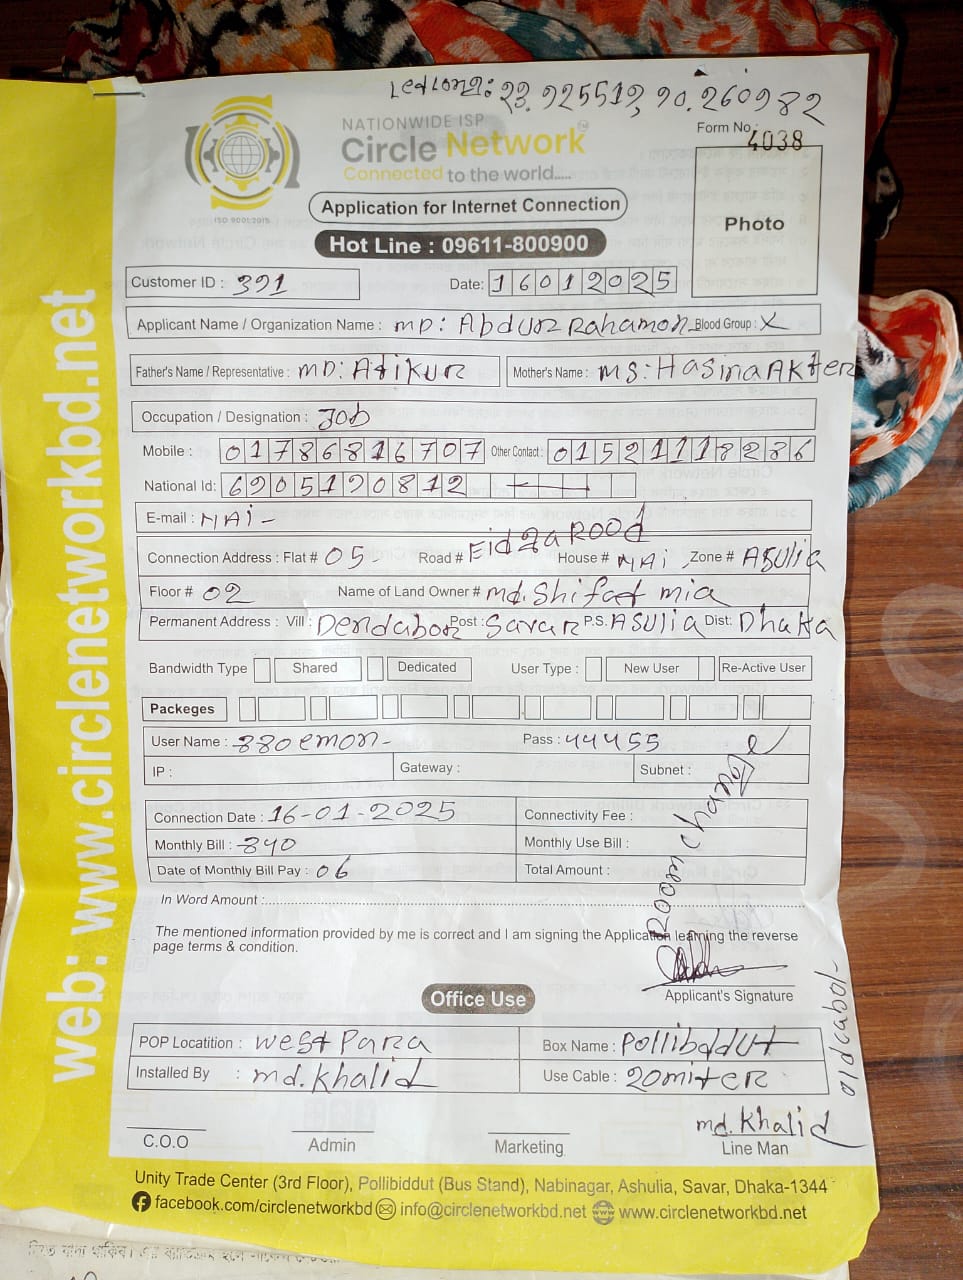 23.925512, 90.260982
NATIONWIDE ISP
Circle Network
Connected to the world.....
ISO 9001:2015
Form No: 4038
Application for Internet Connection
Hot Line : 09611-800900
Photo
Customer ID : 391 Date: 16012025
Applicant Name / Organization Name : MD: Abdur Rahamon Blood Group : X
Father's Name / Representative : MD: Atikur Mother's Name : MS: Hasina AKter
Occupation / Designation : Job
Mobile : 01786816707 Other Contact : 01521118286
National Id: 6905190812
E-mail : NAi -
Connection Address : Flat # 05 - Road # Eidga Rood House # NAi Zone # ASUlia
Floor # 02 Name of Land Owner # md. Shifat mia
Permanent Address : Vill : Dendabor Post : Savar P.S. ASUlia Dist: Dhaka
Bandwidth Type Shared Dedicated User Type : New User Re-Active User
Packeges
User Name : 330emon - Pass : 44455
IP : Gateway : Subnet :
Connection Date : 16-01-2025 Connectivity Fee :
Monthly Bill : 840 Monthly Use Bill :
Date of Monthly Bill Pay : 06 Total Amount :
room change
In Word Amount :
The mentioned information provided by me is correct and I am signing the Application learning the reverse
page terms & condition.
Applicant's Signature
Office Use
POP Locatition : west Para Box Name : Pollibddut
Installed By : md. Khalid Use Cable : 20miter
old cabol -
md. Khalid
C.O.O Admin Marketing Line Man
Unity Trade Center (3rd Floor), Pollibiddut (Bus Stand), Nabinagar, Ashulia, Savar, Dhaka-1344
facebook.com/circlenetworkbd info@circlenetworkbd.net www.circlenetworkbd.net
web: www.circlenetworkbd.net